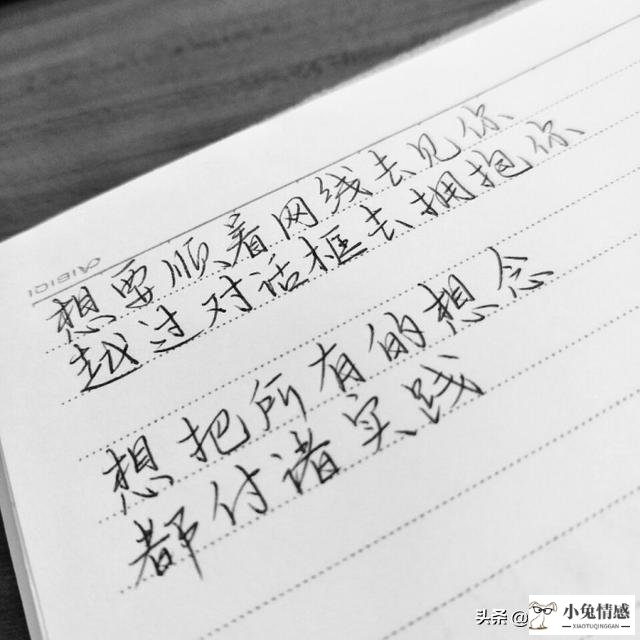 想要顺着网线去见你
越过对话框去拥抱你
想把所有的想念
都付诸实践
头条 @
小兔情感
XIAOTUQINGGAN